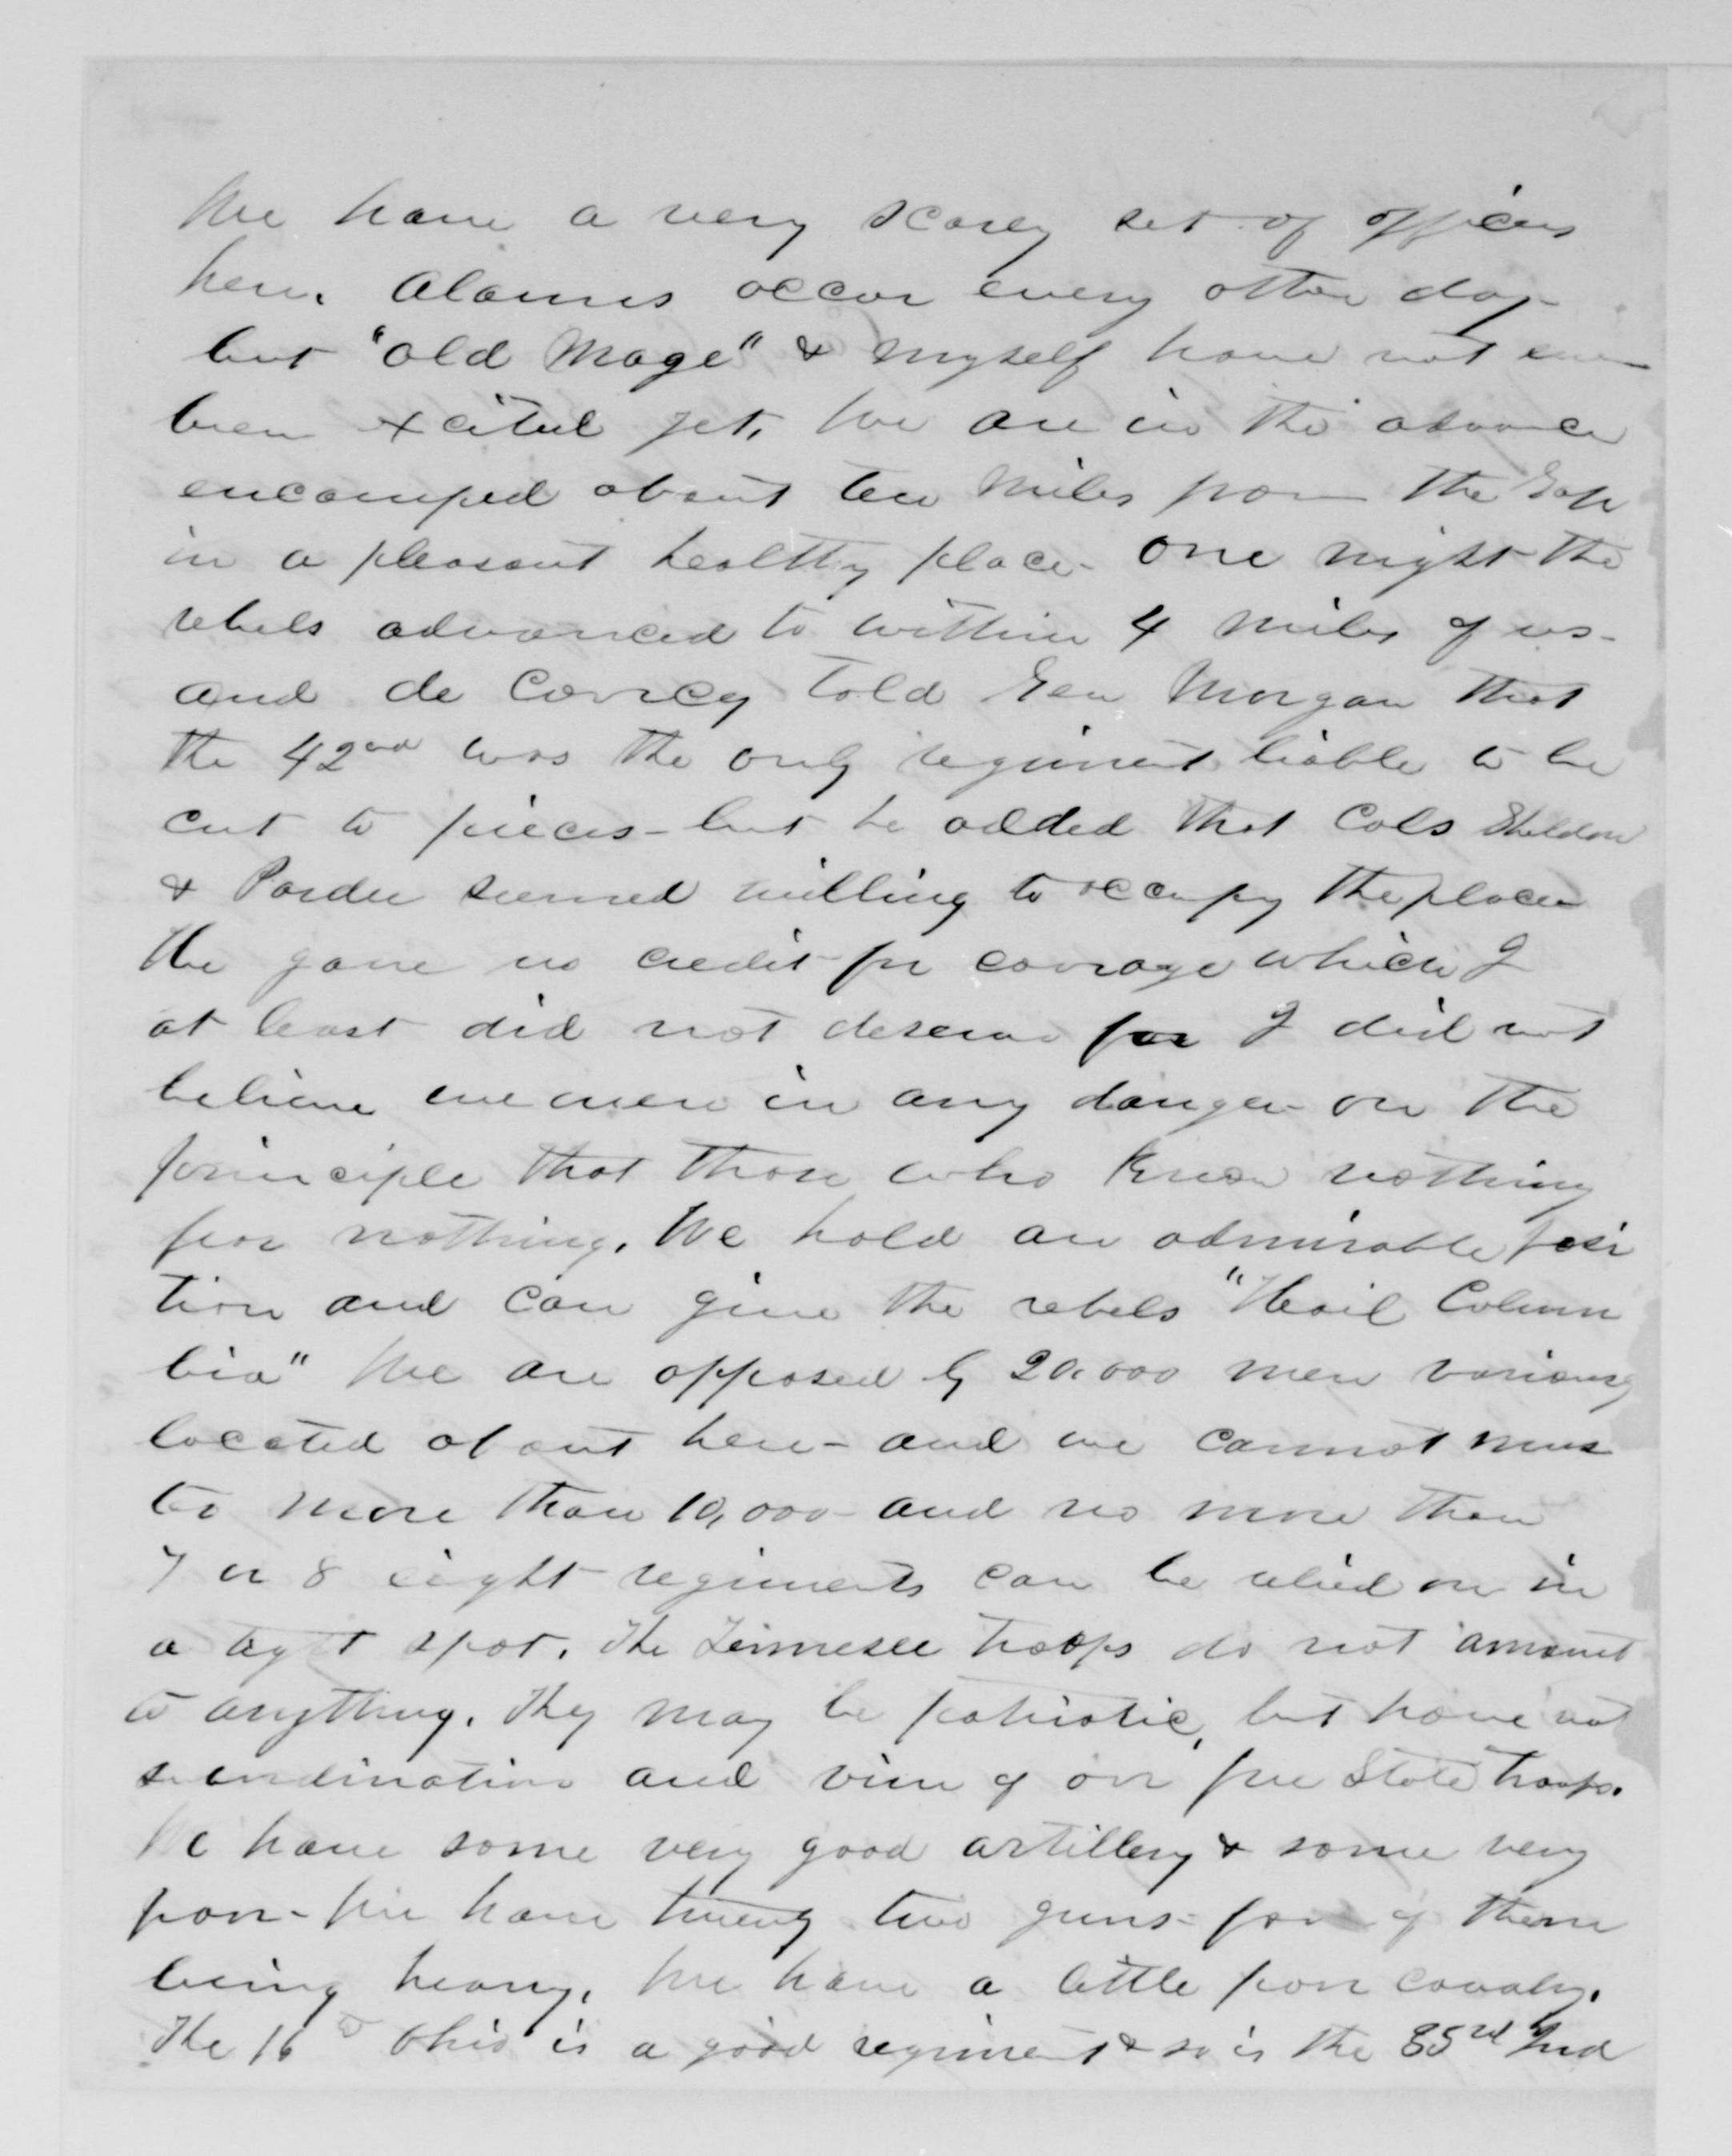 We have a very scarey set of officers
here. Alarms occur every other day
but "old Mage" & myself have not even
been excited yet. We are in the advance
encamped about ten miles from the Gap
in a pleasant healthy place. One night the
rebels advanced to within 4 miles of us-
and de Courcey told Gen Morgan that
the 42nd was the only regiment liable to be
cut to pieces- but he added that Cols Sheldon
& Pardee seemed willing to occupy the place
He gave us credit for courage which I
at least did not deserve for I did not
believe we were in any danger on the
principle that those who know nothing
fear nothing. We hold an admirable posi
tion and can give the rebels "Hail Colum
bia" We are opposed by 20,000 men variously
located about here- and we cannot mus
ter more than 10,000- and no more than
7 or 8 eight regiments can be relied on in
a tight spot. The Tennesee troops do not amount
to anything. They may be patriotic, but have not
and vim of our free State troops.
We have some very good artillery & some very
poor- We have twenty two guns- four of them
being heavy. We have a little poor cavalry.
The 16th Ohio is a good regiment & so is the Ind